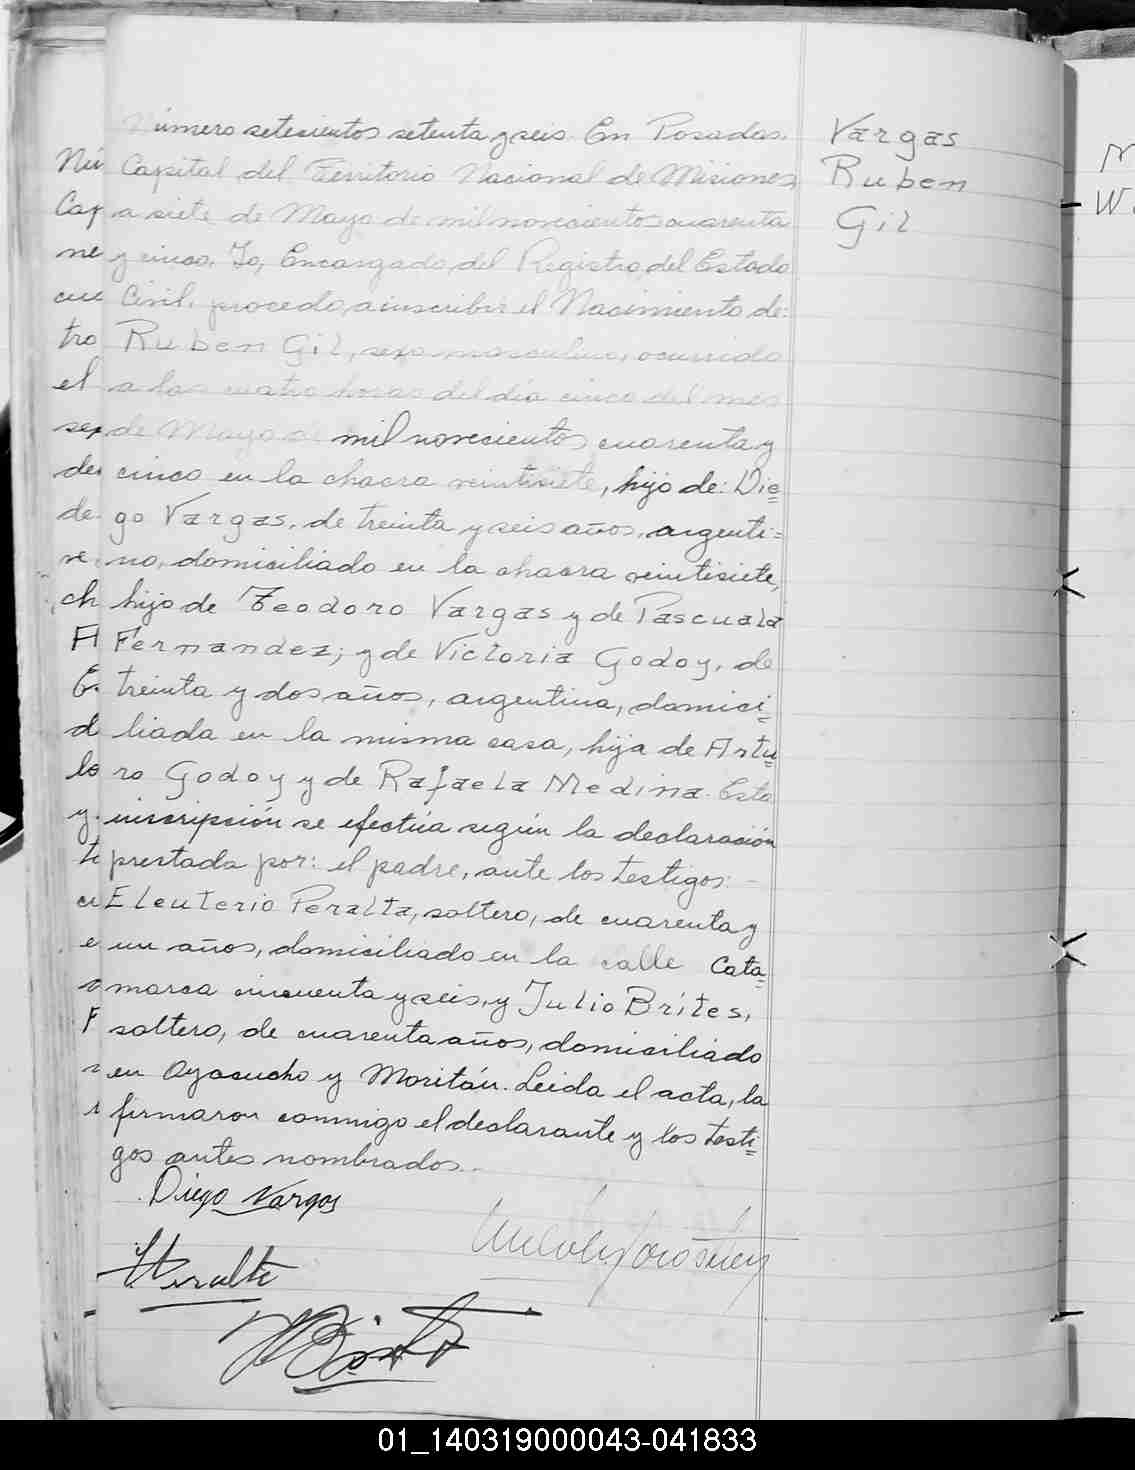 Número setecientos setenta y seis. En Posadas,
Capital del Territorio Nacional de Misiones,
a siete de Mayo de mil novecientos cuarenta
y cinco. Yo, Encargado del Registro del Estado
Civil, procedo a inscribir el Nacimiento de:
Ruben Gil, sexo masculino, ocurrido
a las cuatro horas del día cinco del mes
de Mayo de mil novecientos cuarenta y
cinco en la chacra veintisiete, hijo de: Die=
go Vargas, de treinta y seis años, argenti=
no, domiciliado en la chacra veintisiete,
hijo de Teodoro Vargas y de Pascuala
Fernandez; y de Victoria Godoy, de
treinta y dos años, argentina, domici=
liada en la misma casa, hija de Artu=
ro Godoy y de Rafaela Medina. Esta
inscripción se efectúa según la declaración
prestada por: el padre, ante los testigos:
Eleuterio Peralta, soltero, de cuarenta y
un años, domiciliado en la calle Cata=
marca cincuenta y seis, y Julio Brites,
soltero, de cuarenta años, domiciliado
en Ayacucho y Moritán. Leida el acta, la
firmaron conmigo el declarante y los testi=
gos antes nombrados.
Diego Vargas
Peralta
Vargas
Ruben
Gil
Nú
Cap
ne
cua
tro
el
sex
de
de
ch
lo
y
01_140319000043-041833